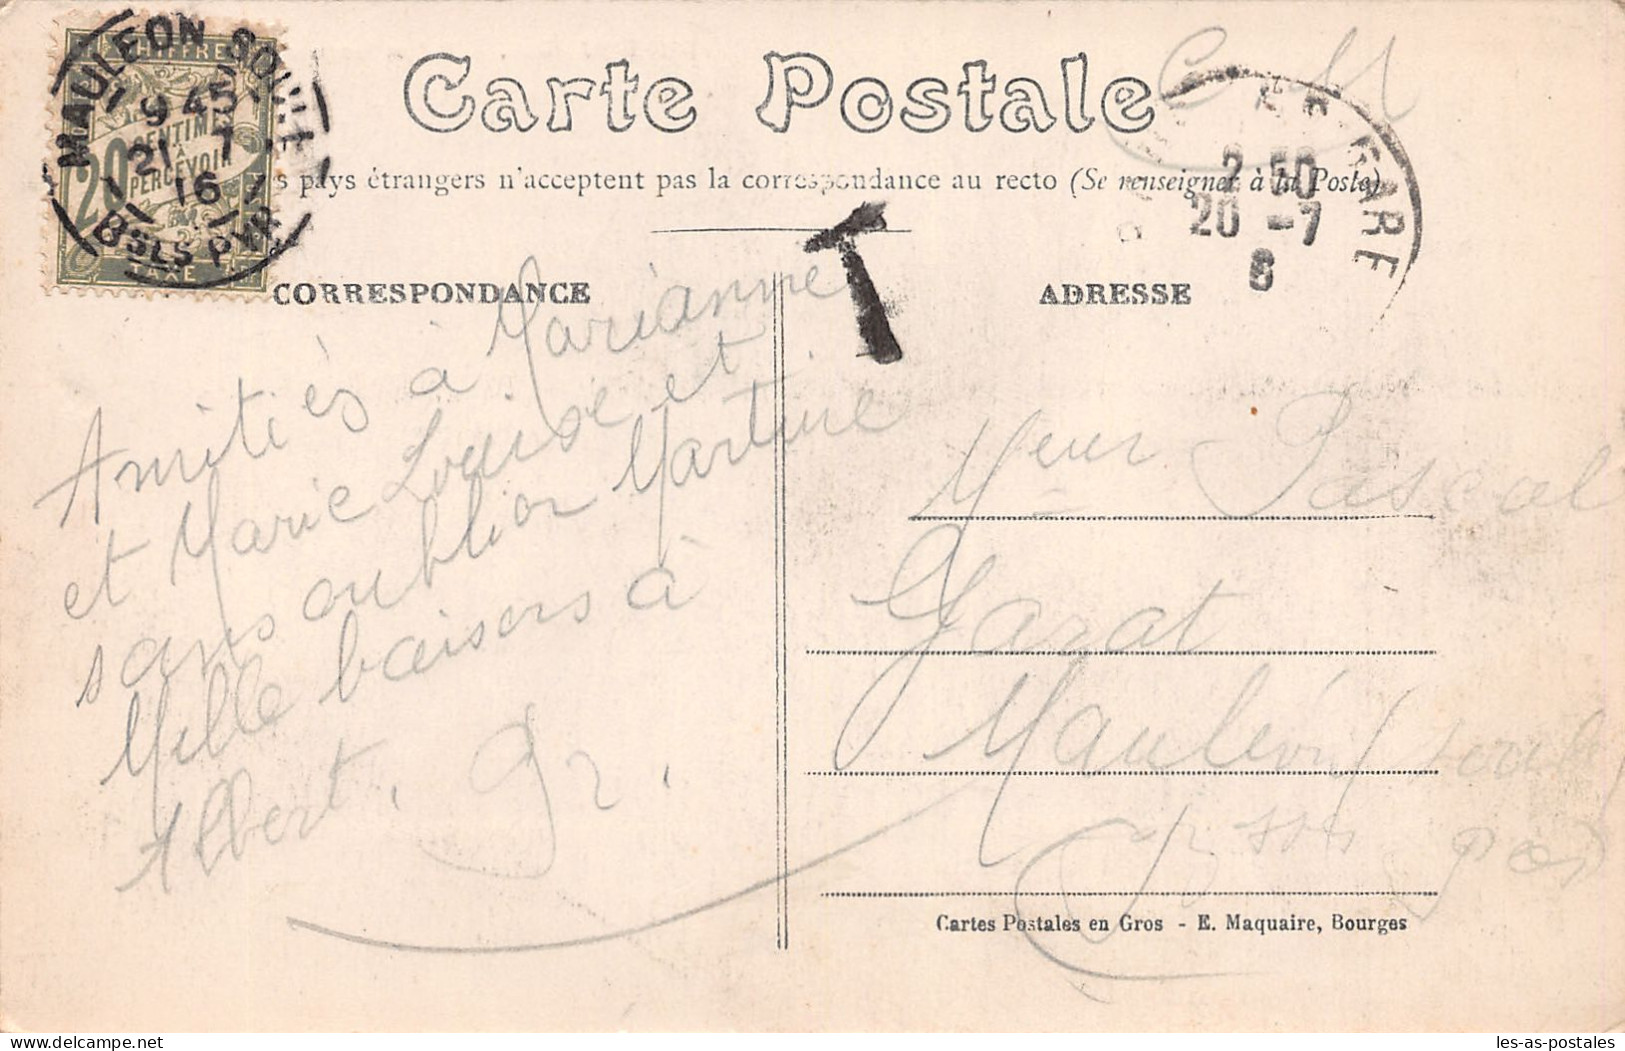 Carte Postale
C M
s pays étrangers n'acceptent pas la correspondance au recto (Se renseigner à la Poste)
CHIFFRE
20 CENTIMES
À
PERCEVOIR
TAXE
MAULÉON SOULE
9 45
21 7
16
BSES PYR
GARE
2 50
20 -7
6
T
CORRESPONDANCE
ADRESSE
Amitiés à Marianne
et Marie Louise et
sans oublier Martine
Mille baisers à
Albert. Gz.
Meur Pascal
Garat
Mauléon (Soule)
Cartes Postales en Gros - E. Maquaire, Bourges
les-as-postales